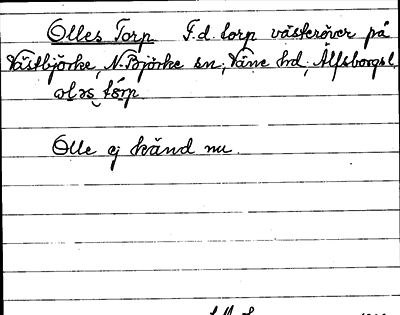 Olles Torp F.d. torp västeröver på
Västbjörke, N. Björke sn, Väne hd, Älfsborgs l.
Olle ej känd nu.